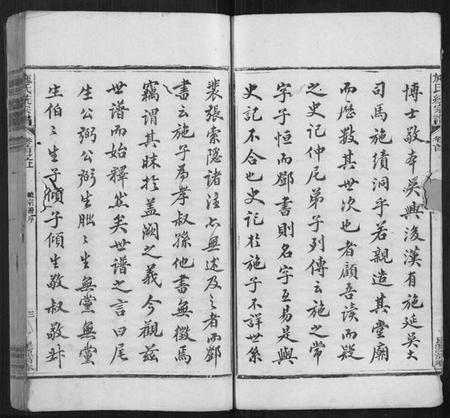 博士敬本吳興後漢有施延吳大
司馬施績洞乎若親造其堂廟
而歷數其世次也者顧吾讀而疑
之史記仲尼弟子列傳云施之常
字子恒而鄧書則名字互易是與
史記不合也史記於施子不詳世系
裴張索隱諸注亦無述及之者而鄧
書云施子為孝叔孫他書無徵焉
竊謂其昧於蓋闕之義今觀茲
世譜而始釋然矣世譜之言曰尾
生公弼公弼生朏朏生無黨無黨
生伯伯生子傾子傾生敬叔敬叔
三